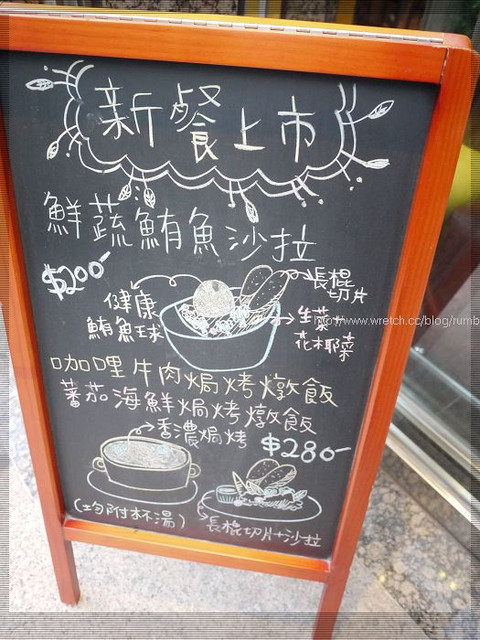 新餐上市
鮮蔬鮪魚沙拉
$200-
健康
鮪魚球
長棍
切片
生菜
花椰菜
http://www.wretch.cc/blog/rumb
咖哩牛肉焗烤燉飯
蕃茄海鮮焗烤燉飯
香濃焗烤
$280-
(均附杯湯)
長棍切片+沙拉